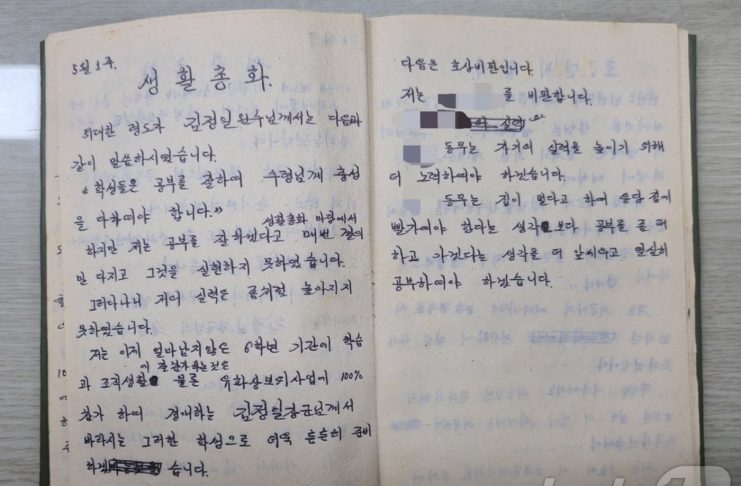 5월 1주.
생활총화.
위대한 령도자 김정일원수님께서는 다음과
같이 말씀하시였습니다.
《학생들은 공부를 잘하여 수령님께 충성
을 다하여야 합니다.》 생활총화 마당에서
하지만 저는 공부를 잘하겠다고 매번 결의
만 다지고 그것을 실현하지 못하였습니다.
그러다나니 저의 실력은 좀처럼 높아지지
못하였습니다.
저는 이제 얼마남지않은 6학년 기간이 학습
에 잘 참가하는것은
과 조직생활 물론 우화상보위사업에 100%
참가 하여 경애하는 김정일장군님께서
바라시는 그러한 학생으로 더욱 튼튼히 준비
하겠습니다.
다음은 호상비판입니다.
저는 를 비판합니다.
동무는 자기의 실력을 높이기 위해
더 노력하여야 하겠습니다.
동무는 집이 멀다고 하여 늘 집에
빨리가야 한다는 생각보다 공부를 좀 더
하고 가겠다는 생각을 더 앞세우고 열심히
공부하여야 하겠습니다.